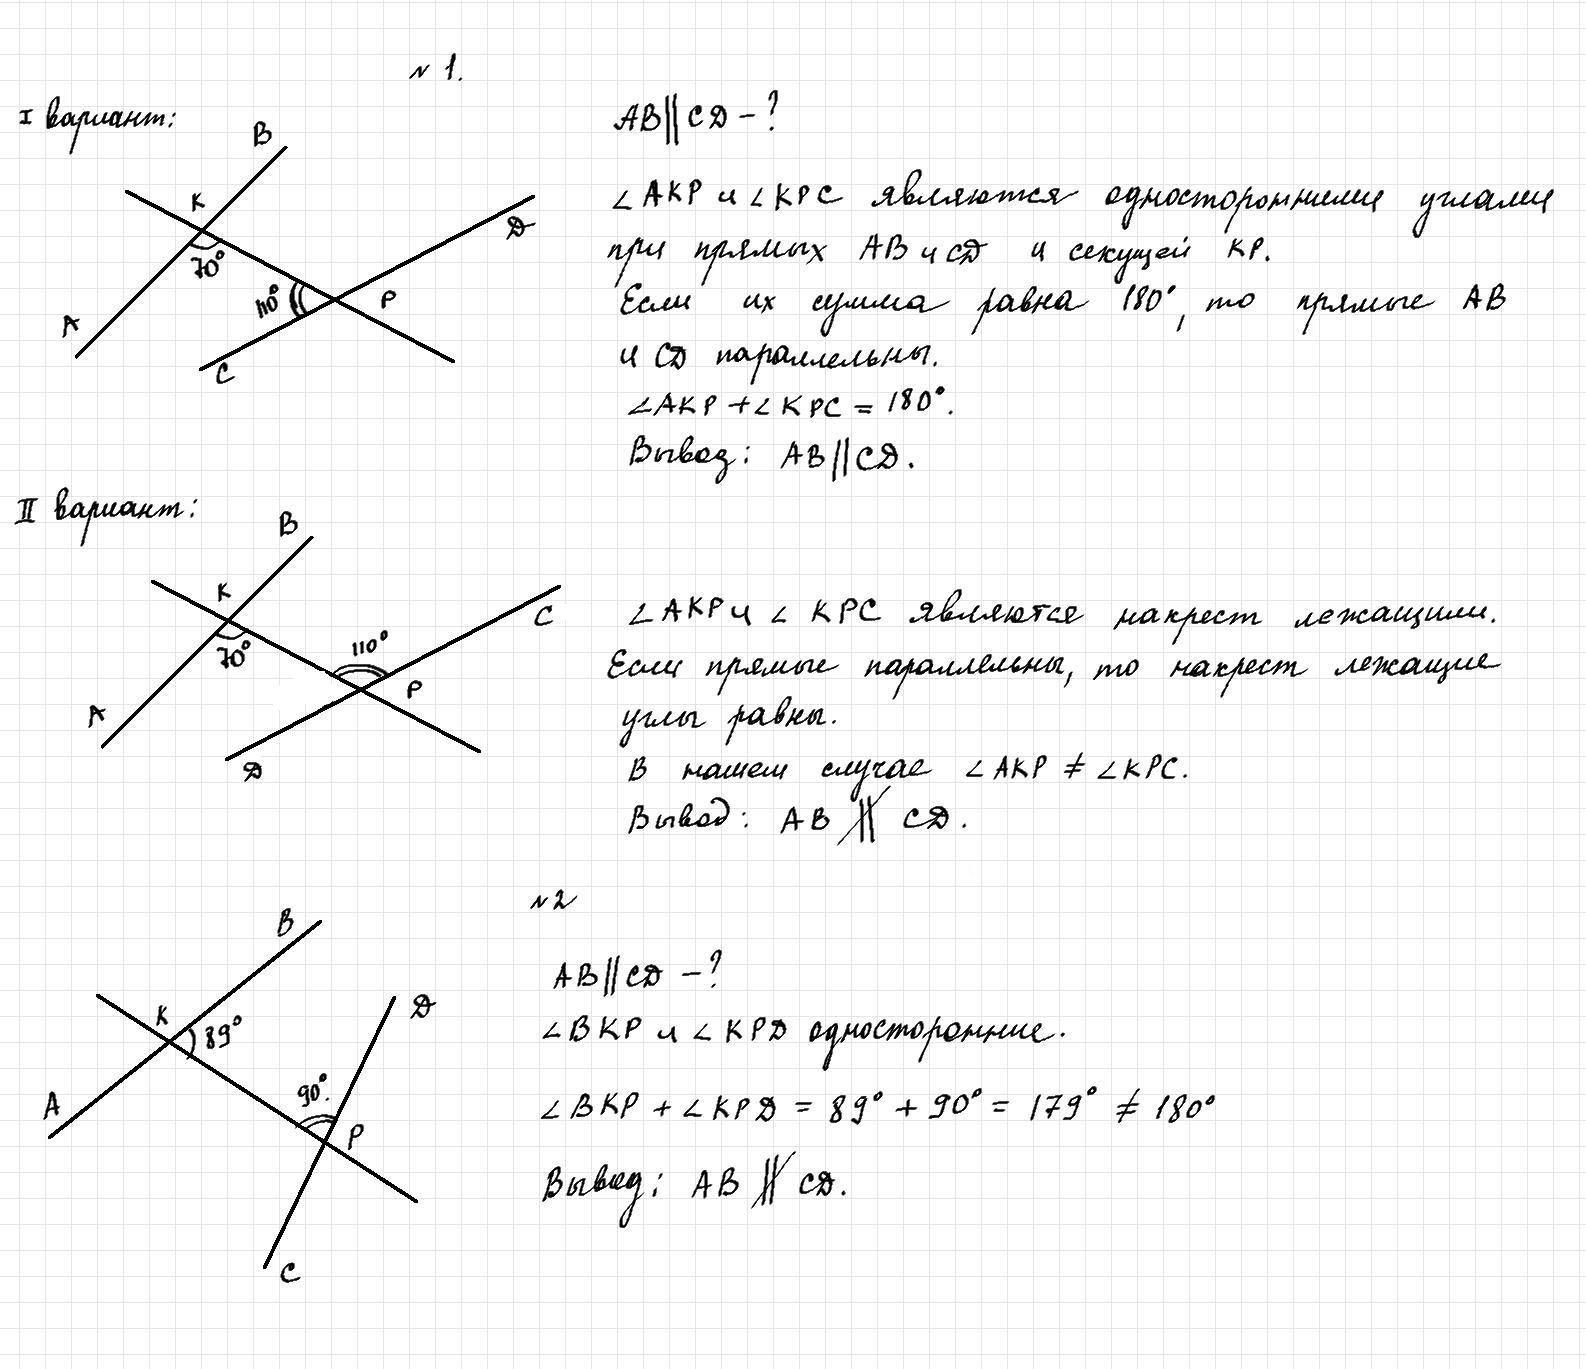 № 1.
I вариант:
B
K
70°
110°
A
P
D
C
AB || CD - ?
∠AKP и ∠KPC являются односторонними углами
при прямых AB и CD и секущей KP.
Если их сумма равна 180°, то прямые AB
и CD параллельны.
∠AKP + ∠KPC = 180°.
Вывод: AB || CD.
II вариант:
B
K
70°
110°
A
P
C
D
∠AKP и ∠KPC являются накрест лежащими.
Если прямые параллельны, то накрест лежащие
углы равны.
В нашем случае ∠AKP ≠ ∠KPC.
Вывод: AB ∦ CD.
№2
B
K
89°
A
90°.
P
D
C
AB || CD - ?
∠BKP и ∠KPD односторонние.
∠BKP + ∠KPD = 89° + 90° = 179° ≠ 180°
Вывод: AB ∦ CD.